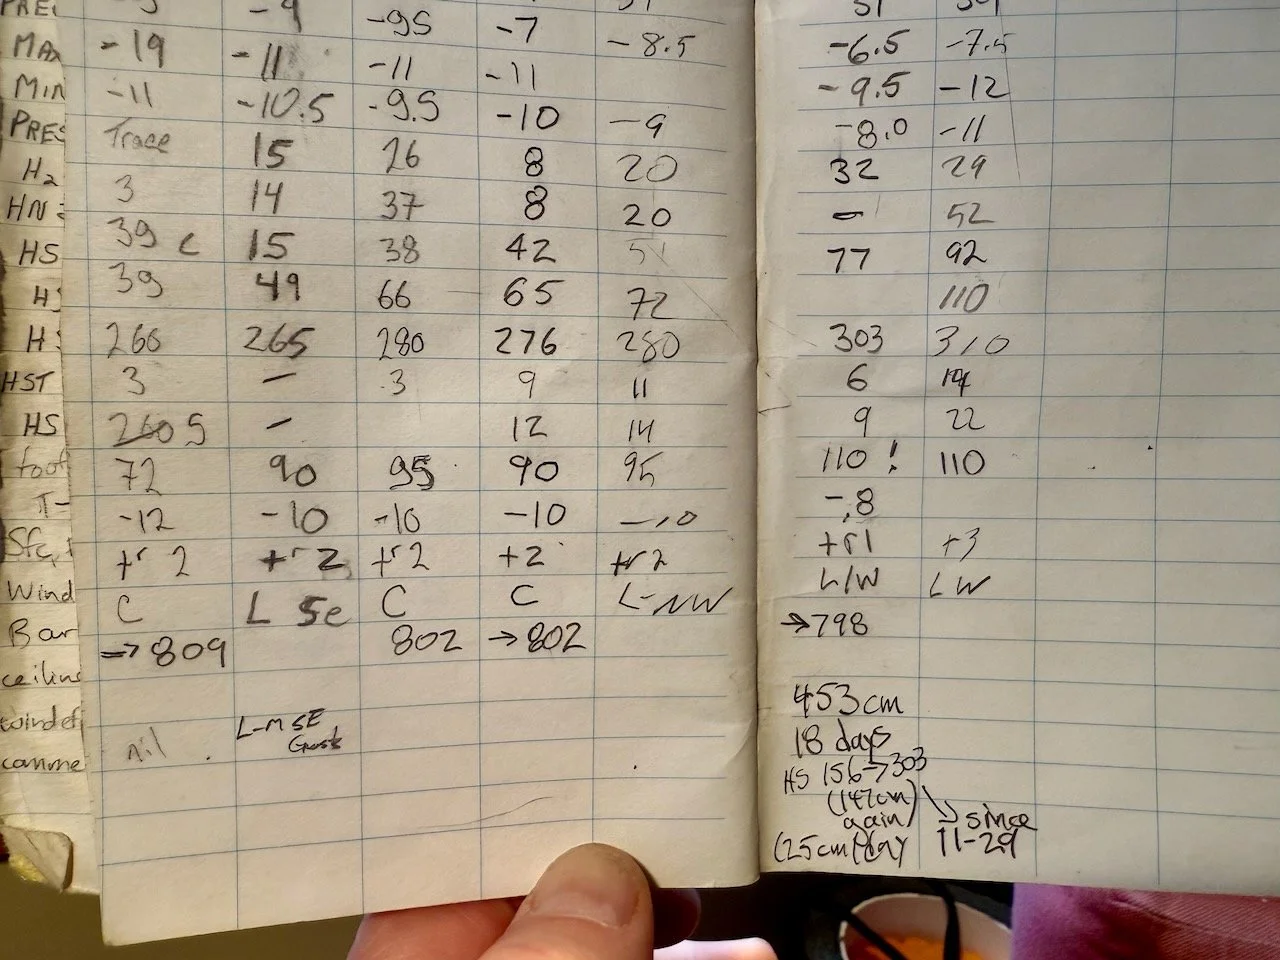 -9 -95 -7 -8.5 -6.5 -7.5
MAX -19 -11 -11 -11 -9.5 -12
MIN -11 -10.5 -9.5 -10 -9 -8.0 -11
PRES Trace 15 26 8 20 32 29
H2 3 14 37 8 20 - 52
HN 39 c 15 38 42 77 92
HS 39 49 66 65 72 110
H 260 265 280 276 280 303 310
H 3 - 3 9 11 6 14
HST 5 - 12 14 9 22
HS 72 90 95 90 95 110 ! 110
foot -12 -10 -10 -10 -10 -.8
T- +r 2 +r 2 +r 2 +2 +r 2 +r1 +3
Sfc, C L Se C C L-NW L/W LW
Wind → 809 802 → 802 → 798
Bar
ceiling
windef nil L-M SE Gusts
comme
453cm
18 days
HS 156→303
(147cm)
gain) since
(25cm/day 11-29